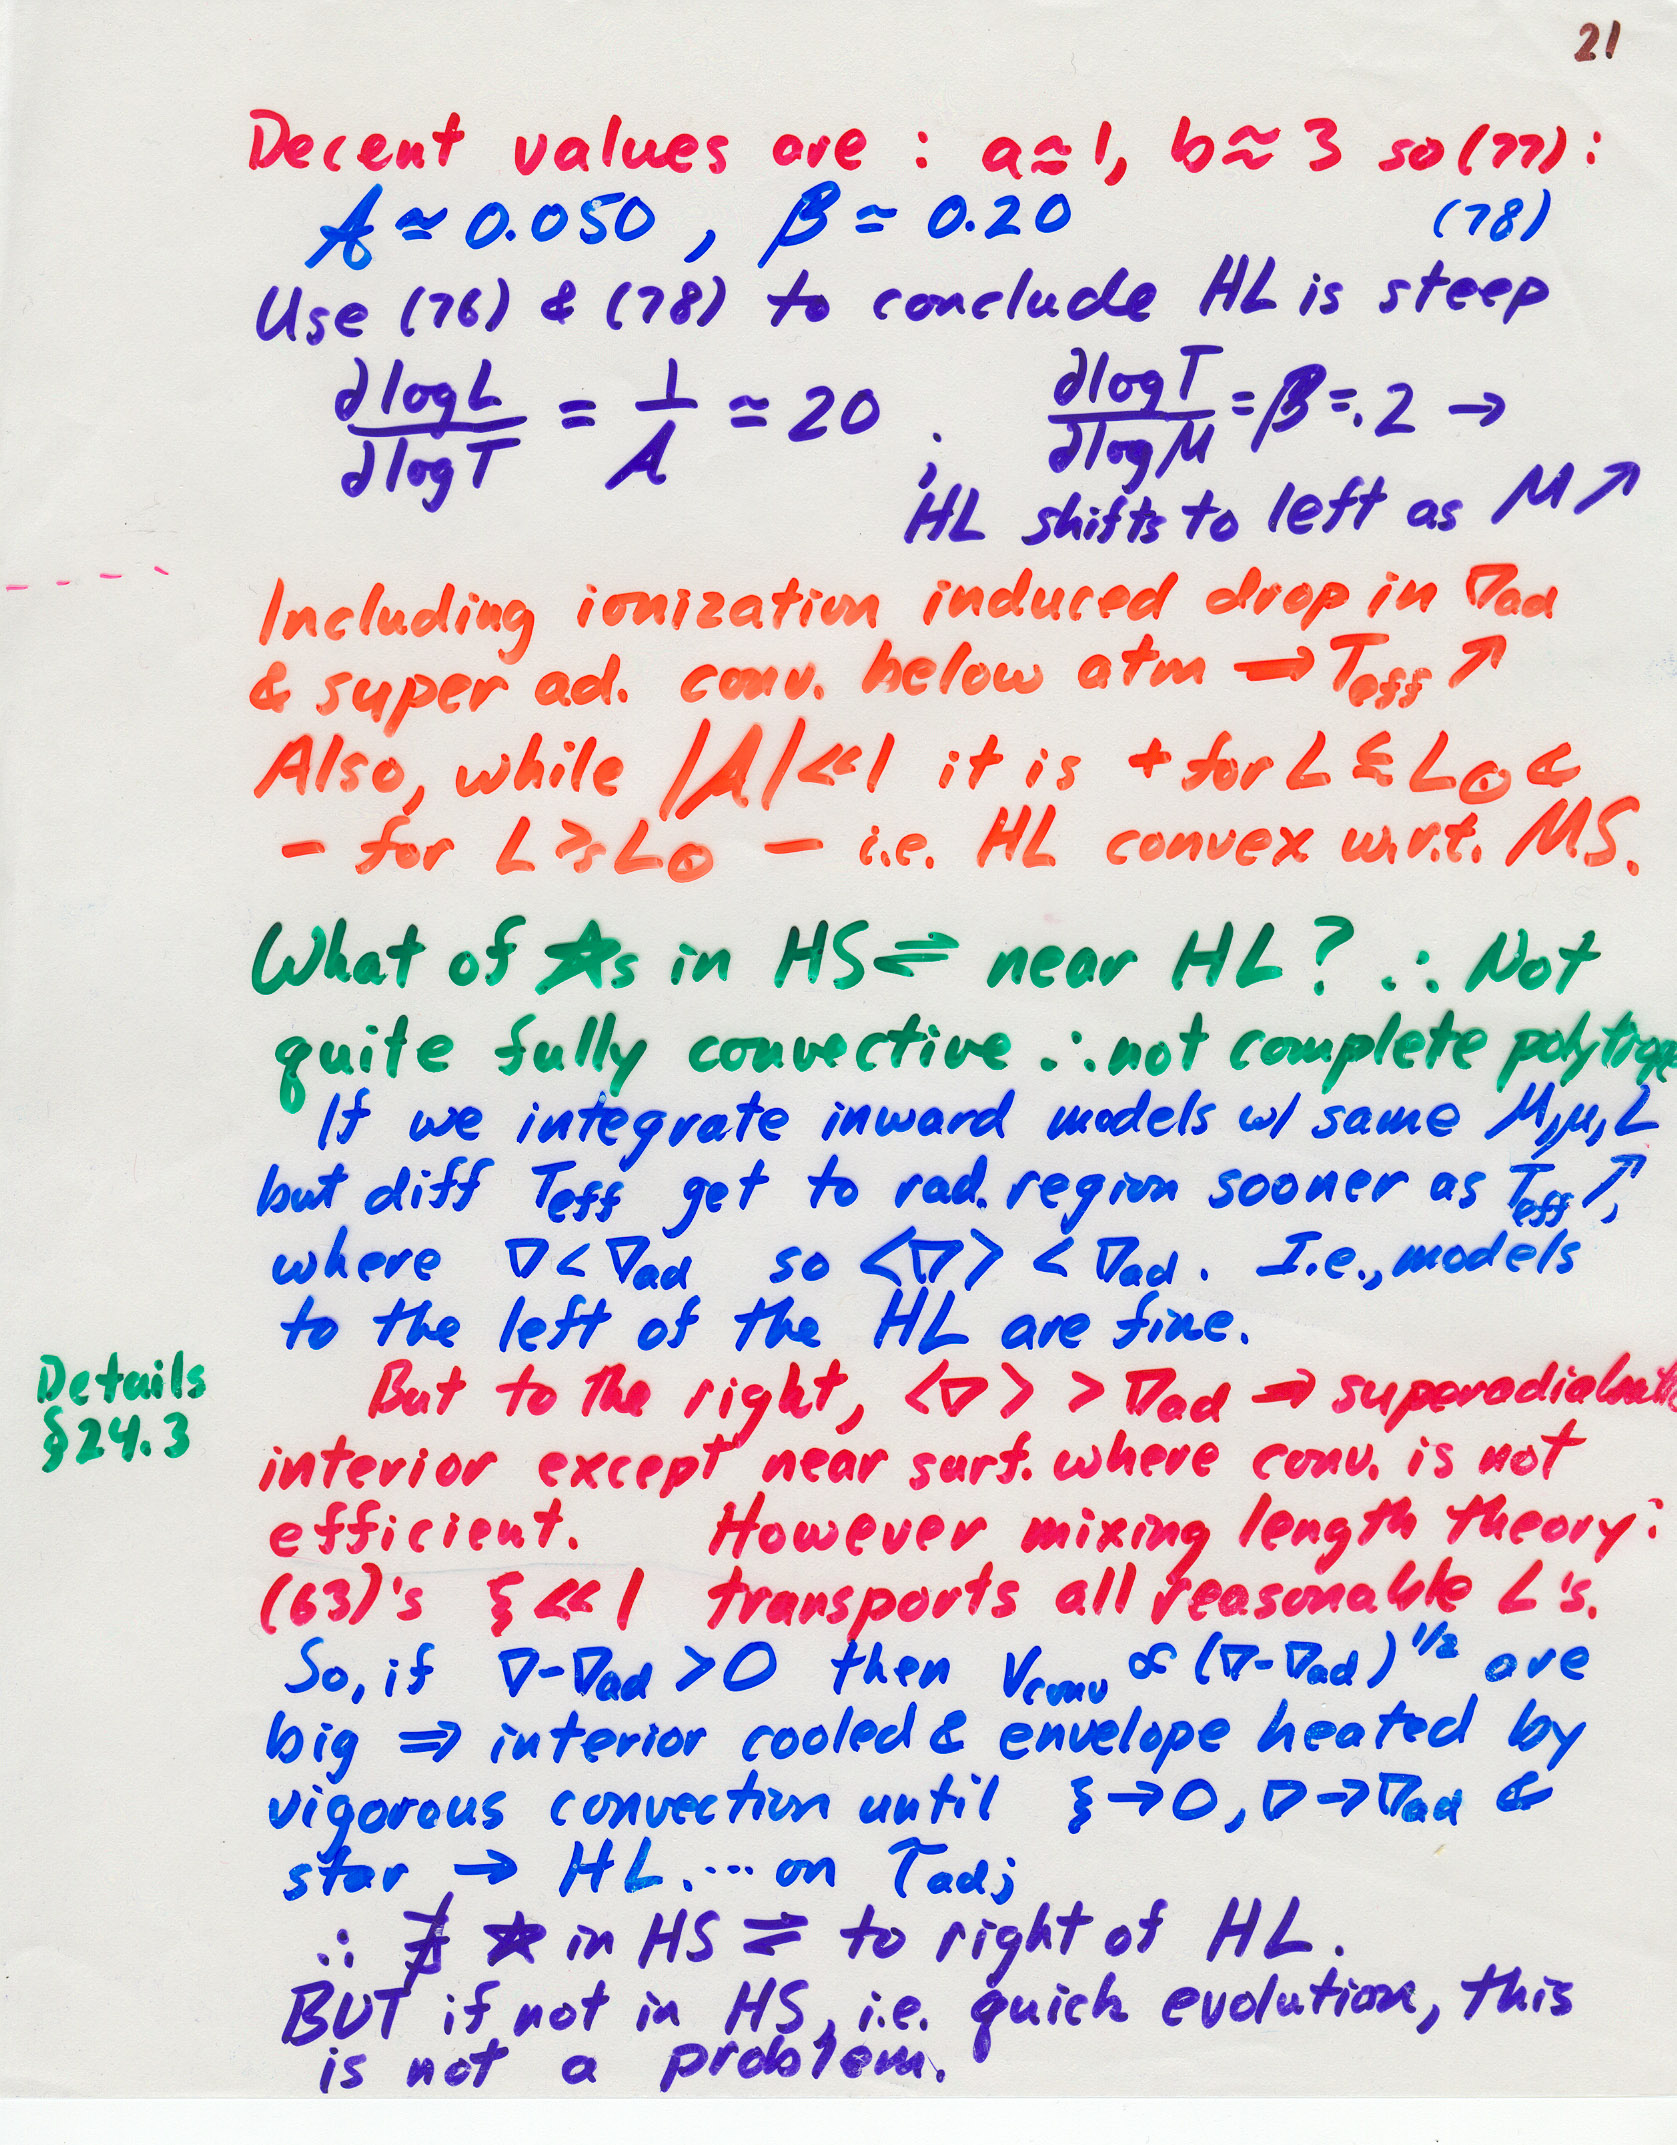 21
Decent values are : a≃1, b≃3 so (77) :
A ≃ 0.050 , B ≃ 0.20 (78)
Use (76) & (78) to conclude HL is steep
∂logL/∂logT = 1/A ≃ 20 ; ∂logT/∂logM = B = .2 →
HL shifts to left as M ↗
Including ionization induced drop in ∇ad
& super ad. conv. below atm → Teff ↗
Also, while |A| << 1 it is + for L ≲ L⊙ &
- for L ≳ L⊙ - i.e. HL convex w.r.t. MS.
What of ☆s in HS ⇌ near HL? ∴ Not
quite fully convective ∴ not complete polytrope
If we integrate inward models w/ same M, μ, L
but diff Teff get to rad. region sooner as Teff ↗,
where ∇ < ∇ad so <∇> < ∇ad. I.e., models
to the left of the HL are fine.
Details
§24.3
But to the right, <∇> > ∇ad → superadiabatic
interior except near surf. where conv. is not
efficient. However mixing length theory:
(63)'s ξ << 1 transports all reasonable L's.
So, if ∇-∇ad > 0 then Vconv ∝ (∇-∇ad)^1/2 are
big ⇒ interior cooled & envelope heated by
vigorous convection until ξ → 0, ∇ → ∇ad &
star → HL. ... on τadj
∴ ∄ ☆ in HS ⇌ to right of HL.
BUT if not in HS, i.e. quick evolution, this
is not a problem.